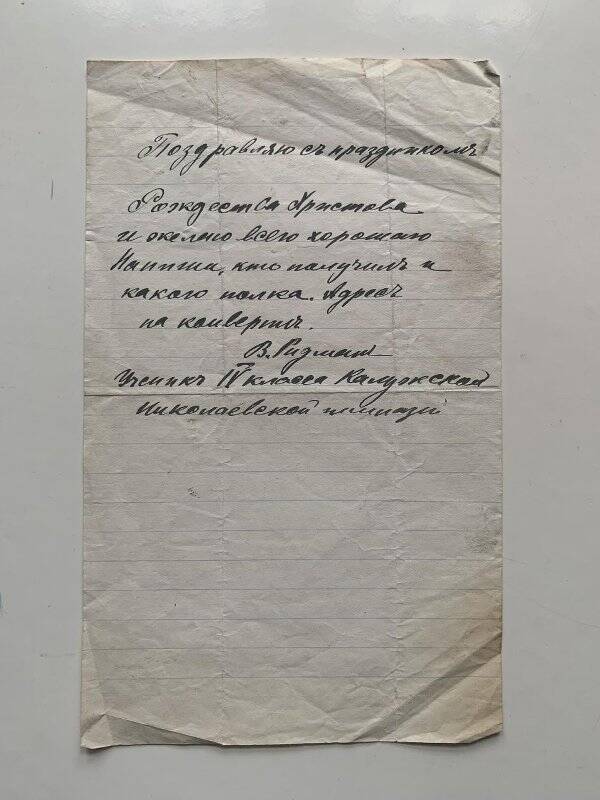 Поздравляю съ праздникомъ
Рождества Христова
и желаю всего хорошаго
Напиши, кто получилъ и
какого полка. Адресъ
на конвертѣ.
В. Ризман
Ученикъ IV класса Калужской
Николаевской гимназiи